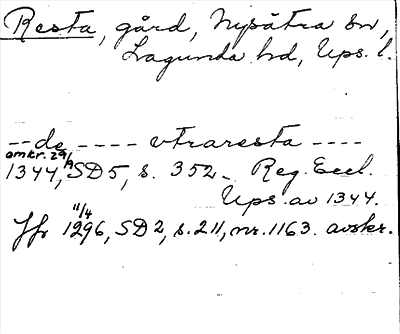 Resta, gård, Nysätra sn,
Lagunda hd, Ups. l.
-- de ---- vtraresta ----
omkr. 29/9
1344, SD 5, s. 352. Reg. Eccl.
Ups. av 1344.
Jfr 11/4 1296, SD 2, s. 211, nr. 1163. avskr.